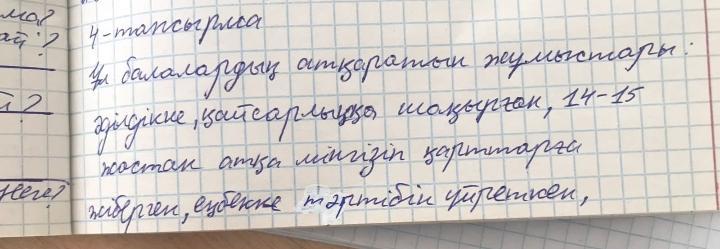 ма?
ай?
й?
Неге?
4-тапсырма
Ұл балалардың атқаратын жұмыстары:
әділдікке, қайсарлыққа шақырған, 14-15
жастан атқа мінгізіп қарттарға
жіберген, еңбекке тәртібін үйреткен,